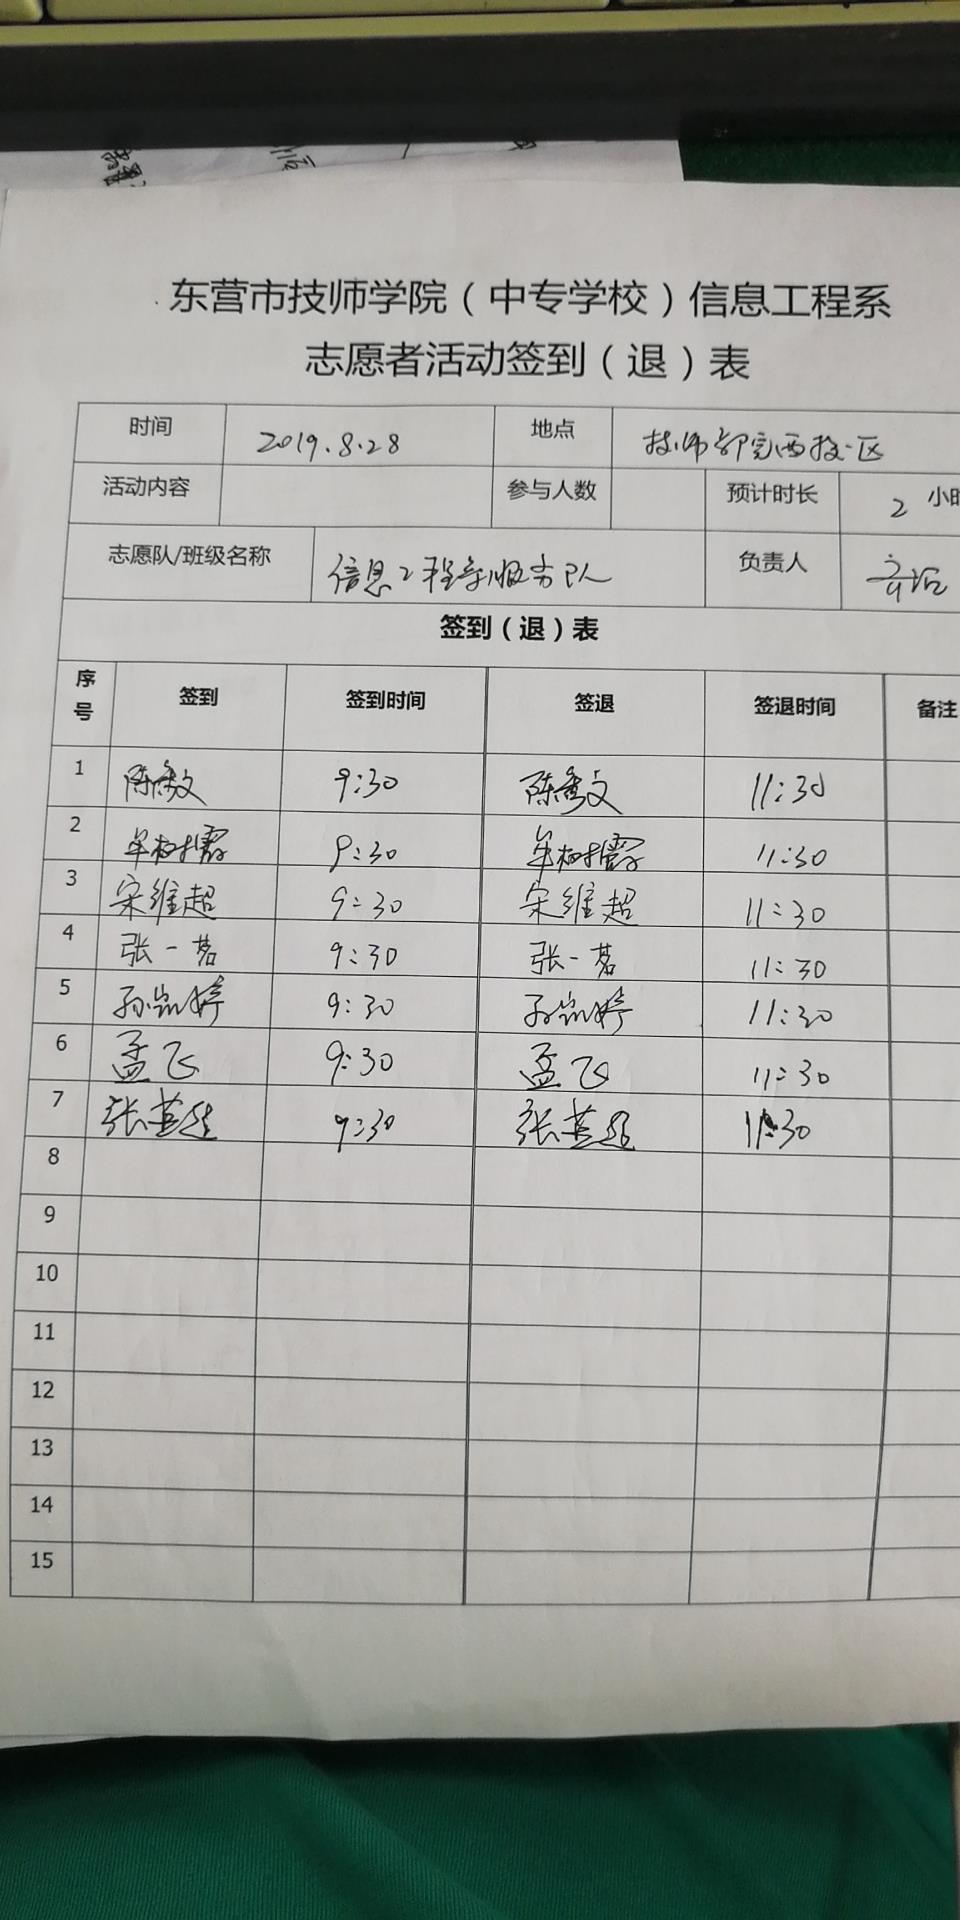 东营市技师学院（中专学校）信息工程系
志愿者活动签到（退）表
时间 2019.8.28 地点 技师学院西校区
活动内容 参与人数 预计时长 2 小时
志愿队/班级名称 信息工程系服务队 负责人
签到（退）表
序号 签到 签到时间 签退 签退时间 备注
1 陈秀文 9:30 陈秀文 11:30
2 9:30 11:30
3 宋维超 9:30 宋维超 11:30
4 张一茗 9:30 张一茗 11:30
5 孙凯婷 9:30 孙凯婷 11:30
6 孟飞 9:30 孟飞 11:30
7 9:30 11:30
8
9
10
11
12
13
14
15